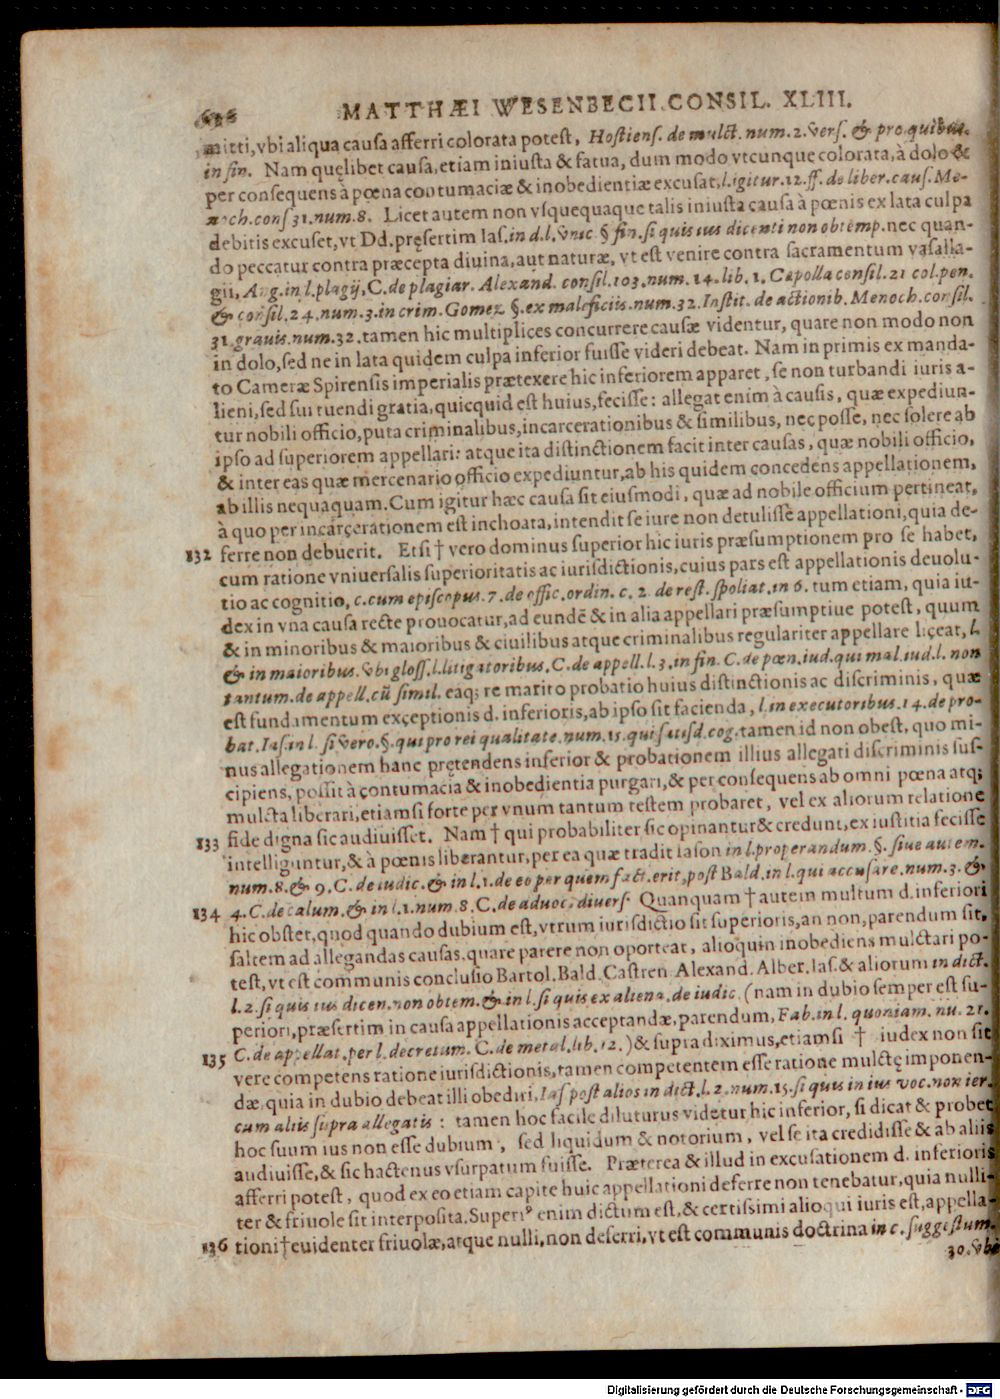 MATTHÆI WESENBECII.CONSIL. XLIII.
mitti,vbi aliqua causa afferri colorata potest, Hostiens. de mulct. num. 2. vers. & pro quibus.
in fin. Nam quęlibet causa, etiam iniusta & fatua, dum modo vtcunque colorata, à dolo &
per consequens à pœna contumaciæ & inobedientiæ excusat, l. igitur. 12. ff. de liber. caus. Me-
noch. cons 31. num. 8. Licet autem non vsquequaque talis iniusta causa à pœnis ex lata culpa
debitis excuset, vt Dd. pręsertim Ias. in d. l. vnic § fin. si quis ius dicenti non obtemp. nec quan-
do peccatur contra præcepta diuina, aut naturæ, vt est venire contra sacramentum vasalla-
gij, Ang. in l. plagij, C. de plagiar. Alexand. consil. 103. num. 14. lib. 1. Capolla consil. 21 col. pen.
& consil. 24. num. 3. in crim. Gomez §. ex maleficiis. num. 32. Instit. de actionib. Menoch. consil.
31. grauis. num. 32. tamen hic multiplices concurrere causæ videntur, quare non modo non
in dolo, sed ne in lata quidem culpa inferior fuisse videri debeat. Nam in primis ex manda-
to Cameræ Spirensis imperialis prætexere hic inferiorem apparet, se non turbandi iuris a-
lieni, sed sui tuendi gratia, quicquid est huius, fecisse: allegat enim à causis, quæ expediun-
tur nobili officio, puta criminalibus, incarcerationibus & similibus, nec posse, nec solere ab
ipso ad superiorem appellari: atque ita distinctionem facit inter causas, quæ nobili officio,
& inter eas quæ mercenario officio expediuntur, ab his quidem concedens appellationem,
ab illis nequaquam. Cum igitur hæc causa sit eiusmodi, quæ ad nobile officium pertineat,
à quo per incarcerationem est inchoata, intendit se iure non detulisse appellationi, quia de-
132 ferre non debuerit. Etsi † vero dominus superior hic iuris præsumptionem pro se habet,
cum ratione vniuersalis superioritatis ac iurisdictionis, cuius pars est appellationis deuolu-
tio ac cognitio, c. cum episcopus. 7. de offic. ordin. c. 2. de rest. spoliat. in 6. tum etiam, quia iu-
dex in vna causa recte prouocatur, ad eundē & in alia appellari præsumptiue potest, quum
& in minoribus & maioribus & ciuilibus atque criminalibus regulariter appellare liceat, l.
& in maioribus. vbi gloss. l. litigatoribus. C. de appell. l. 3. in fin. C. de pœn. iud. qui mal. iud. l. non
tantum. de appell. cū simil. eaq; re marito probatio huius distinctionis ac discriminis, quæ
est fundamentum exceptionis d. inferioris, ab ipso sit facienda, l. in executoribus. 14. de pro-
bat. Ias. in l. si vero. §. qui pro rei qualitate. num. 15. qui satisd. cog. tamen id non obest, quo mi-
nus allegationem hanc prętendens inferior & probationem illius allegati discriminis sus-
cipiens, possit à contumacia & inobedientia purgari, & per consequens ab omni pœna atq;
mulcta liberari, etiamsi forte per vnum tantum testem probaret, vel ex aliorum relatione
133 fide digna sic audiuisset. Nam † qui probabiliter sic opinantur & credunt, ex iustitia fecisse
intelliguntur, & à pœnis liberantur, per ea quæ tradit Iason in l. properandum. §. siue autem.
num. 8. & 9. C. de iudic. & in l. 1. de eo per quem fact. erit, post Bald. in l. qui accusare. num. 3. &
134 4. C. de calum. & in l. 1. num. 8. C. de aduoc. diuers. Quanquam † autem multum d. inferiori
hic obstet, quod quando dubium est, vtrum iurisdictio sit superioris, an non, parendum sit,
saltem ad allegandas causas, quare parere non oporteat, alioquin inobediens mulctari po-
test, vt est communis conclusio Bartol. Bald. Castren. Alexand. Alber. Ias. & aliorum in dict.
l. 2. si quis ius dicen. non obtem. & in l. si quis ex aliena. de iudic. (nam in dubio semper est su-
periori, præsertim in causa appellationis acceptandæ, parendum, Fab. in l. quoniam. nu. 21.
135 C. de appellat. per l. decretum. C. de metal. lib. 12.) & supra diximus, etiamsi † iudex non sit
vere competens ratione iurisdictionis, tamen competentem esse ratione mulctę imponen-
dæ, quia in dubio debeat illi obediri, Ias post alios in dict. l. 2. num. 15. si quis in ius voc. non ier.
cum aliis supra allegatis: tamen hoc facile diluturus videtur hic inferior, si dicat & probet
hoc suum ius non esse dubium, sed liquidum & notorium, vel se ita credidisse & ab aliis
audiuisse, & sic hactenus vsurpatum fuisse. Præterea & illud in excusationem d. inferioris
afferri potest, quod ex eo etiam capite huic appellationi deferre non tenebatur, quia nulli-
ter & friuole sit interposita. Superi⁹ enim dictum est, & certissimi alioqui iuris est, appella-
136 tioni † euidenter friuolæ, atque nulli, non deferri, vt est communis doctrina in c. suggestum.
30. vbi
Digitalisierung gefördert durch die Deutsche Forschungsgemeinschaft - DFG